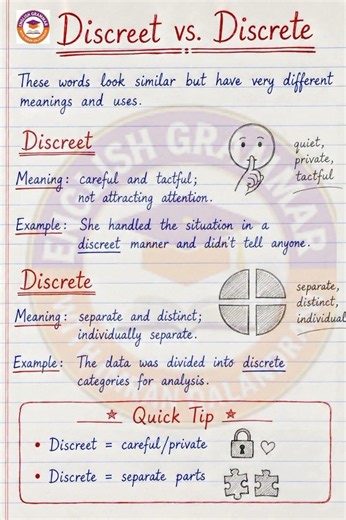 Discreet vs. Discrete
These words look similar but have very different
meanings and uses.
Discreet
Meaning: careful and tactful;
not attracting attention.
quiet,
private,
tactful
Example: She handled the situation in a
discreet manner and didn't tell anyone.
Discrete
Meaning: separate and distinct;
individually separate.
separate,
distinct,
individual
Example: The data was divided into discrete
categories for analysis.
Quick Tip
• Discreet = careful/private
• Discrete = separate parts
ENGLISH GRAMMAR